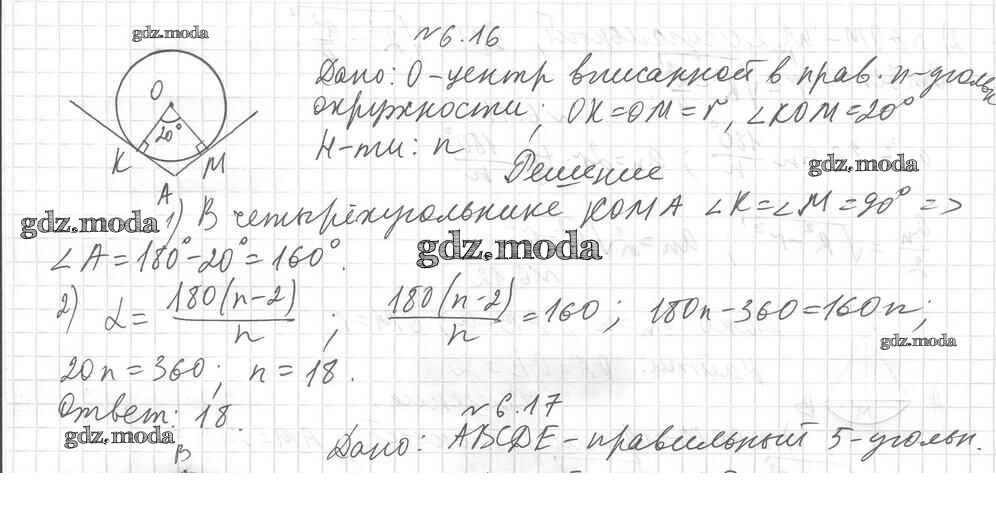 gdz.moda
№6.16
O
20°
К М
А
Дано: О-центр вписанной в прав. n-угольн
окружности; ОК=ОМ=r, ∠КОМ=20°
Н-ти: n
gdz.moda
Решение
gdz.moda
1) В четырёхугольнике КОМА ∠К=∠М=90° =>
∠А=180°-20°=160°.
gdz.moda
2) α= 180(n-2)/n ; 180(n-2)/n =160; 180n-360=160n;
gdz.moda
20n=360; n=18.
Ответ: 18.
№6.17
gdz.moda
Дано: ABCDE-правильный 5-угольн.
gdz.moda
В